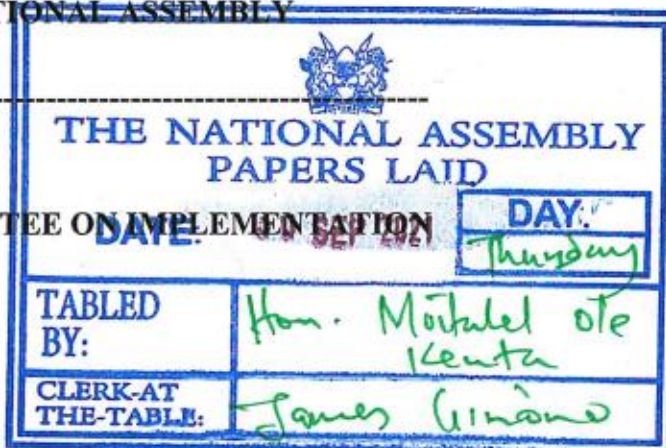 TIONAL ASSEMBLY
THE NATIONAL ASSEMBLY
PAPERS LAID
TEE ON IMPLEMENTATION
DATE: SEP 2021
DAY.
Thursday
TABLED BY:
Hon. Moitalel Ole Kenta
CLERK-AT THE-TABLE:
James